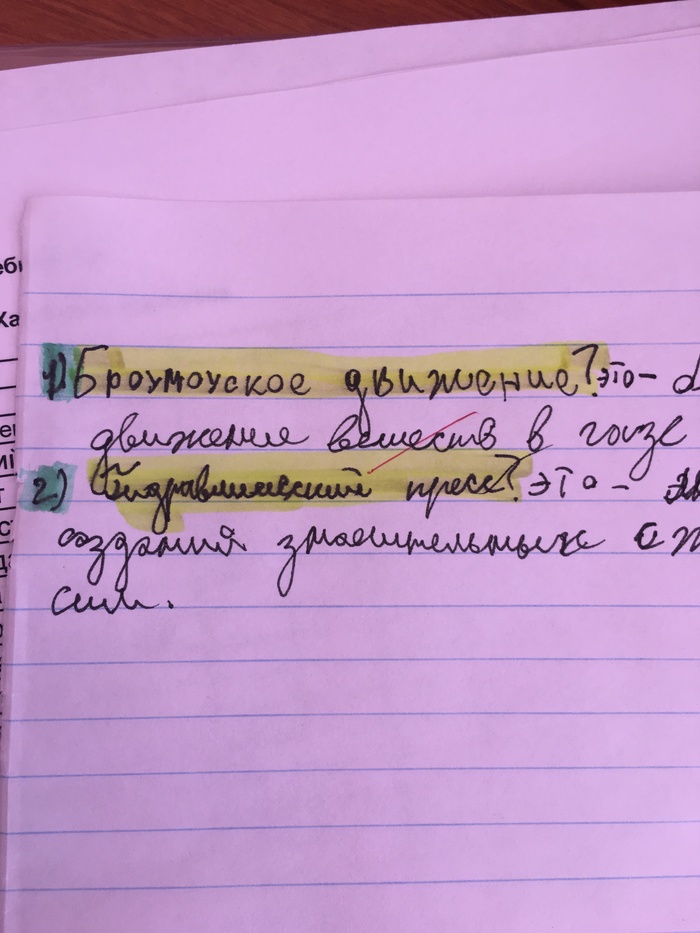 1) Броуноуское движение? это –
движение веществ в газе
2) Гидравлический пресс? это –
создания значительных
сил.